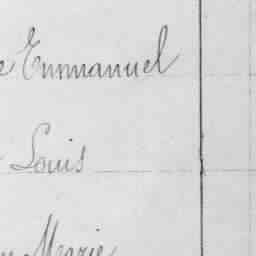 Emmanuel
Louis
Marie